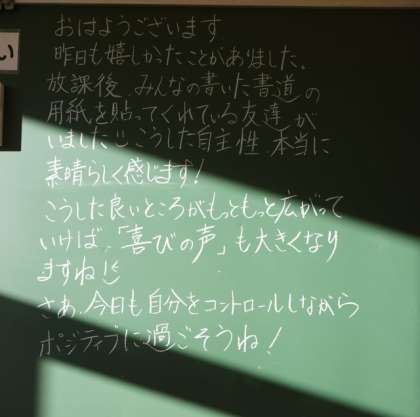 おはようございます
昨日も嬉しかったことがありました。
放課後、みんなの書いた書道の
用紙を貼ってくれている友達が
いました こうした自主性、本当に
素晴らしく感じます!
こうした良いところがもっともっと広がって
いけば、「喜びの声」も大きくなり
ますね!!
さあ、今日も自分をコントロールしながら
ポジティブに過ごそうね!
い